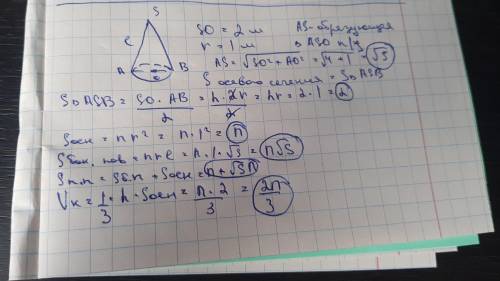 S
l
A
B
O
SO = 2 м
r = 1 м
AS - образующая
△ ASO п/у
AS = √SO² + AO² = √4 + 1 = √5
S осевого сечения = S△ASB
S△ASB = SO · AB / 2 = h · 2r / 2 = hr = 2 · 1 = 2
Sосн = πr² = π · 1² = π
Sбок. пов = πrl = π · 1 · √5 = π√5
Sп.п = Sб.п + Sосн = π + √5π
Vк = 1/3 · h · Sосн = π · 2 / 3 = 2π / 3